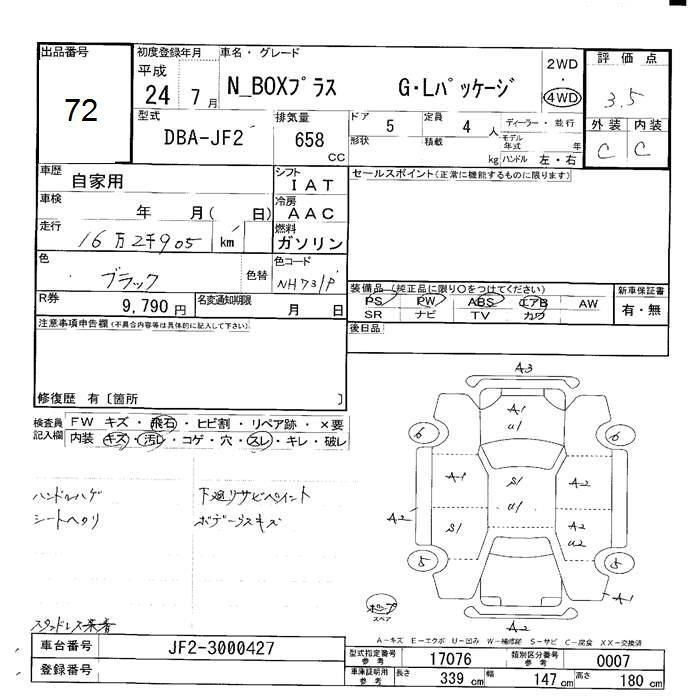 出品番号
72
初度登録年月
平成
24 7月
車名・グレード
N_BOXプラス G・Lパッケージ
2WD
・
4WD
評価点
3.5
外装 内装
C C
型式
DBA-JF2
排気量
658
CC
ドア 5
形状
定員 4 人
積載 kg
ディーラー・並行
モデル年式 年
ハンドル 左・右
車歴 自家用
シフト
IAT
セールスポイント(正常に機能するものに限ります)
車検 年 月( 日)
冷房
AAC
走行 16万2千905 km
燃料
ガソリン
色 ブラック 色替
色コード
NH731P
装備品(純正品に限り○をつけてください)
PS PW ABS エアB AW
SR ナビ TV カワ
新車保証書
有・無
R券 9,790 円
名変通知期限 月 日
後日品
注意事項申告欄(不具合内容等は具体的に記入して下さい)
修復歴 有〔箇所 〕
検査員記入欄
FW キズ・飛石・ヒビ割・リペア跡・×要
内装 キズ・汚レ・コゲ・穴・スレ・キレ・破レ
ハンドルハゲ 下廻りサビペイント
シートヘタリ
スタッドレス装着
A3
A1
U1
6 6
A1 S1 A2
A2 U1 A2
S1 A2
U2
5 5
A1
A2
スペア
A-キズ E-エクボ U-凹み W-補修跡 S-サビ C-腐食 XX-交換済
車台番号 JF2-3000427
登録番号
型式指定番号
参考
17076
類別区分番号
参考
0007
車庫証明用
参考
長さ 339 cm 幅 147 cm 高さ 180 cm